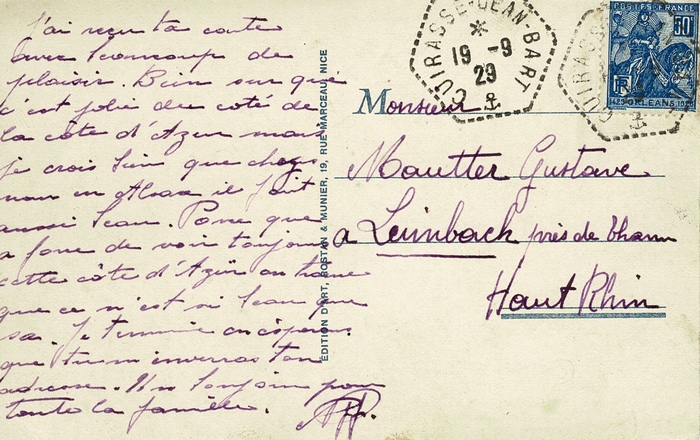 J'ai reçu ta carte
avec beaucoup de
plaisir. Bien sur que
c'est jolie du coté de
la côte d'Azur mais
je crois bien que chez
nous en Alsace il fait
aussi beau. Parce que
a force de voir toujours
cette côte d'Azur on trouve
que ce n'est si beau que
sa. Je termine en espérant
que tu m'enverras ton
adresse. Un bonjour pour
toute la famille.
EDITION D'ART, ROSTAN & MUNIER, 19, RUE MARCEAU, NICE
CUIRASSE-JEAN-BART
19 -9
29
CUIRASSE
POSTES FRANCE
50c
RF
1429 ORLEANS 1929
Monsieur
Mautter Gustave
a Leimbach près de Thann
Haut Rhin